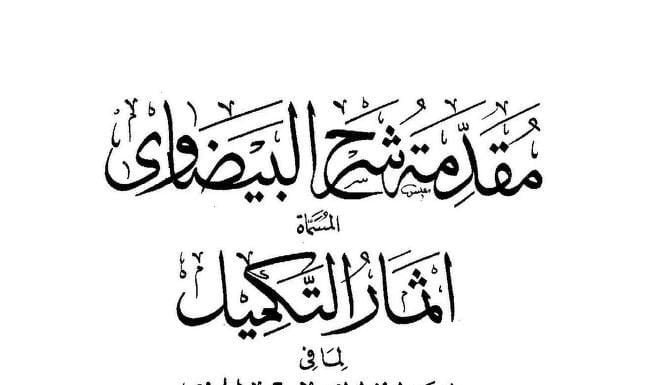 مُقَدِّمَة شَرْح البَيضَاوِى
المُسَمَّاة
اثمَارُ التَّكمِيل
لِمَا فِى